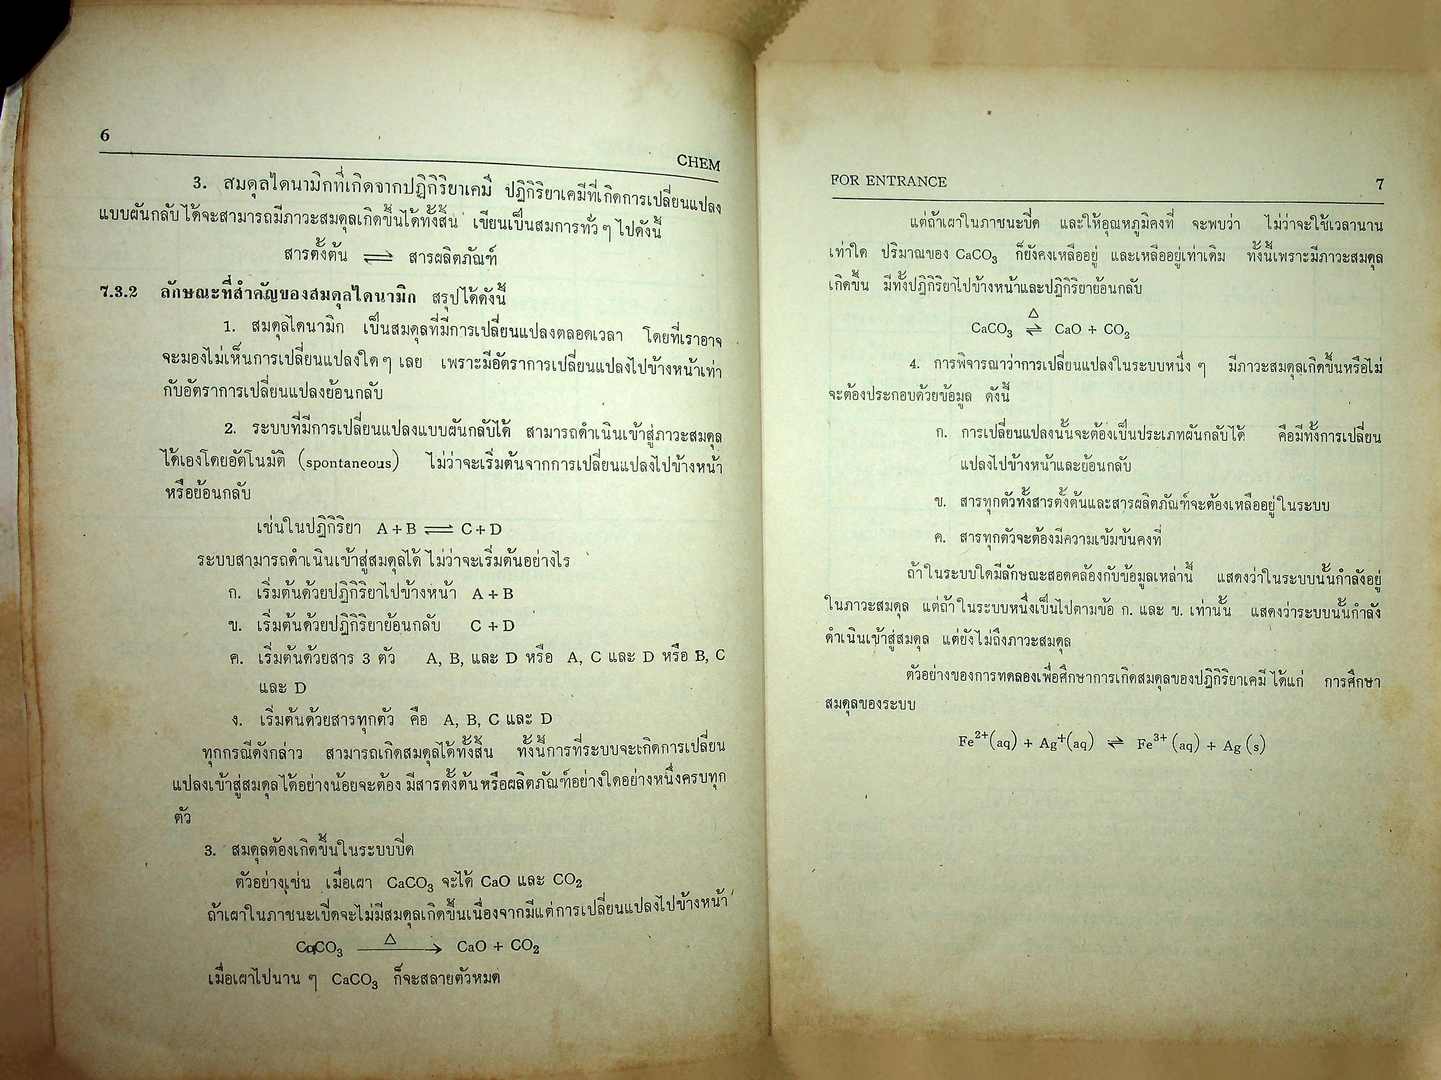 6
CHEM
3. สมดุลไดนามิกที่เกิดจากปฏิกิริยาเคมี ปฏิกิริยาเคมีที่เกิดการเปลี่ยนแปลง
แบบผันกลับได้จะสามารถมีภาวะสมดุลเกิดขึ้นได้ทั้งสิ้น เขียนเป็นสมการทั่ว ๆ ไปดังนี้
สารตั้งต้น ⇌ สารผลิตภัณฑ์
7.3.2 ลักษณะที่สำคัญของสมดุลไดนามิก สรุปได้ดังนี้
1. สมดุลไดนามิก เป็นสมดุลที่มีการเปลี่ยนแปลงตลอดเวลา โดยที่เราอาจ
จะมองไม่เห็นการเปลี่ยนแปลงใด ๆ เลย เพราะมีอัตราการเปลี่ยนแปลงไปข้างหน้าเท่า
กับอัตราการเปลี่ยนแปลงย้อนกลับ
2. ระบบที่มีการเปลี่ยนแปลงแบบผันกลับได้ สามารถดำเนินเข้าสู่ภาวะสมดุล
ได้เองโดยอัตโนมัติ (spontaneous) ไม่ว่าจะเริ่มต้นจากการเปลี่ยนแปลงไปข้างหน้า
หรือย้อนกลับ
เช่นในปฏิกิริยา A + B ⇌ C + D
ระบบสามารถดำเนินเข้าสู่สมดุลได้ ไม่ว่าจะเริ่มต้นอย่างไร
ก. เริ่มต้นด้วยปฏิกิริยาไปข้างหน้า A + B
ข. เริ่มต้นด้วยปฏิกิริยาย้อนกลับ C + D
ค. เริ่มต้นด้วยสาร 3 ตัว A, B, และ D หรือ A, C และ D หรือ B, C
และ D
ง. เริ่มต้นด้วยสารทุกตัว คือ A, B, C และ D
ทุกกรณีดังกล่าว สามารถเกิดสมดุลได้ทั้งสิ้น ทั้งนี้การที่ระบบจะเกิดการเปลี่ยน
แปลงเข้าสู่สมดุลได้อย่างน้อยจะต้อง มีสารตั้งต้นหรือผลิตภัณฑ์อย่างใดอย่างหนึ่งครบทุก
ตัว
3. สมดุลต้องเกิดขึ้นในระบบปิด
ตัวอย่างเช่น เมื่อเผา CaCO₃ จะได้ CaO และ CO₂
ถ้าเผาในภาชนะเปิดจะไม่มีสมดุลเกิดขึ้นเนื่องจากมีแต่การเปลี่ยนแปลงไปข้างหน้า
CaCO₃ —Δ→ CaO + CO₂
เมื่อเผาไปนาน ๆ CaCO₃ ก็จะสลายตัวหมด
FOR ENTRANCE 7
แต่ถ้าเผาในภาชนะปิด และให้อุณหภูมิคงที่ จะพบว่า ไม่ว่าจะใช้เวลานาน
เท่าใด ปริมาณของ CaCO₃ ก็ยังคงเหลืออยู่ และเหลืออยู่เท่าเดิม ทั้งนี้เพราะมีภาวะสมดุล
เกิดขึ้น มีทั้งปฏิกิริยาไปข้างหน้าและปฏิกิริยาย้อนกลับ
Δ
CaCO₃ ⇌ CaO + CO₂
4. การพิจารณาว่าการเปลี่ยนแปลงในระบบหนึ่ง ๆ มีภาวะสมดุลเกิดขึ้นหรือไม่
จะต้องประกอบด้วยข้อมูล ดังนี้
ก. การเปลี่ยนแปลงนั้นจะต้องเป็นประเภทผันกลับได้ คือมีทั้งการเปลี่ยน
แปลงไปข้างหน้าและย้อนกลับ
ข. สารทุกตัวทั้งสารตั้งต้นและสารผลิตภัณฑ์จะต้องเหลืออยู่ในระบบ
ค. สารทุกตัวจะต้องมีความเข้มข้นคงที่
ถ้าในระบบใดมีลักษณะสอดคล้องกับข้อมูลเหล่านี้ แสดงว่าในระบบนั้นกำลังอยู่
ในภาวะสมดุล แต่ถ้าในระบบหนึ่งเป็นไปตามข้อ ก. และ ข. เท่านั้น แสดงว่าระบบนั้นกำลัง
ดำเนินเข้าสู่สมดุล แต่ยังไม่ถึงภาวะสมดุล
ตัวอย่างของการทดลองเพื่อศึกษาการเกิดสมดุลของปฏิกิริยาเคมี ได้แก่ การศึกษา
สมดุลของระบบ
Fe²⁺(aq) + Ag⁺(aq) ⇌ Fe³⁺ (aq) + Ag (s)